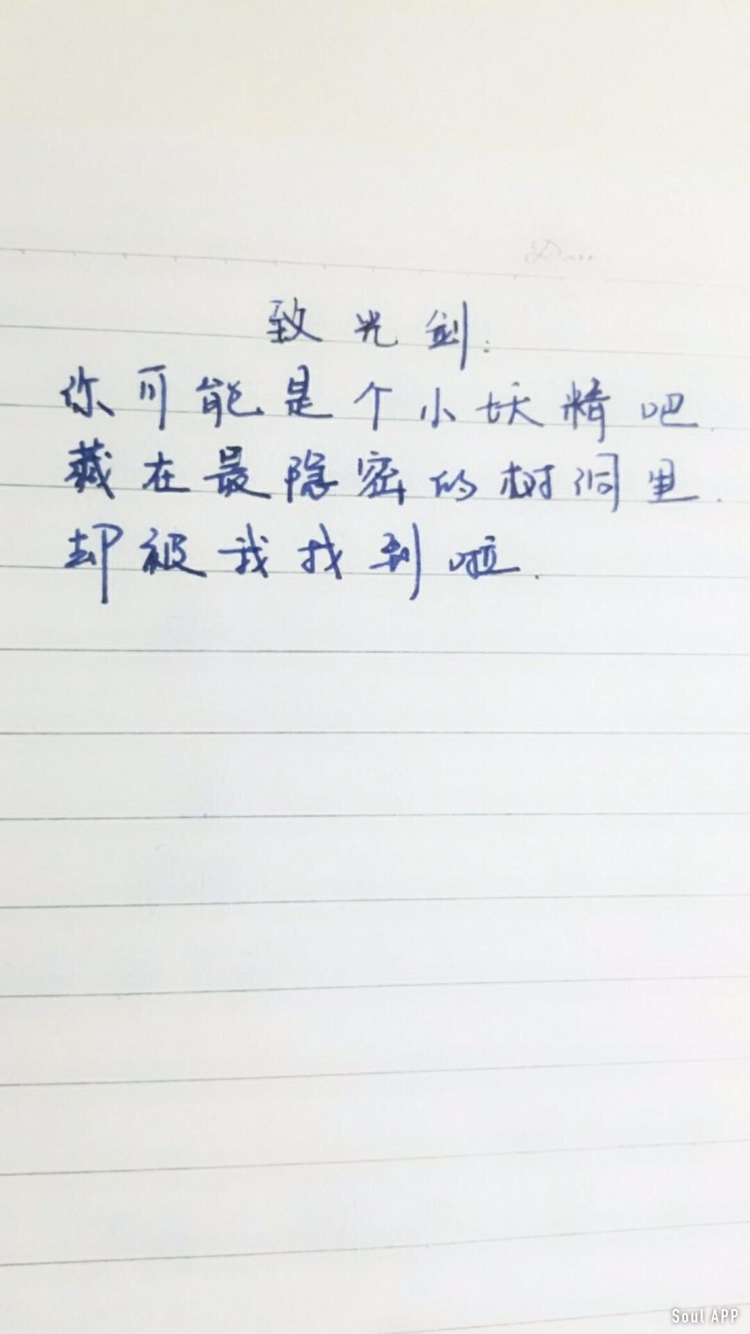 致光剑:
你可能是个小妖精吧.
藏在最隐密的树洞里.
却被我找到啦.
Soul APP